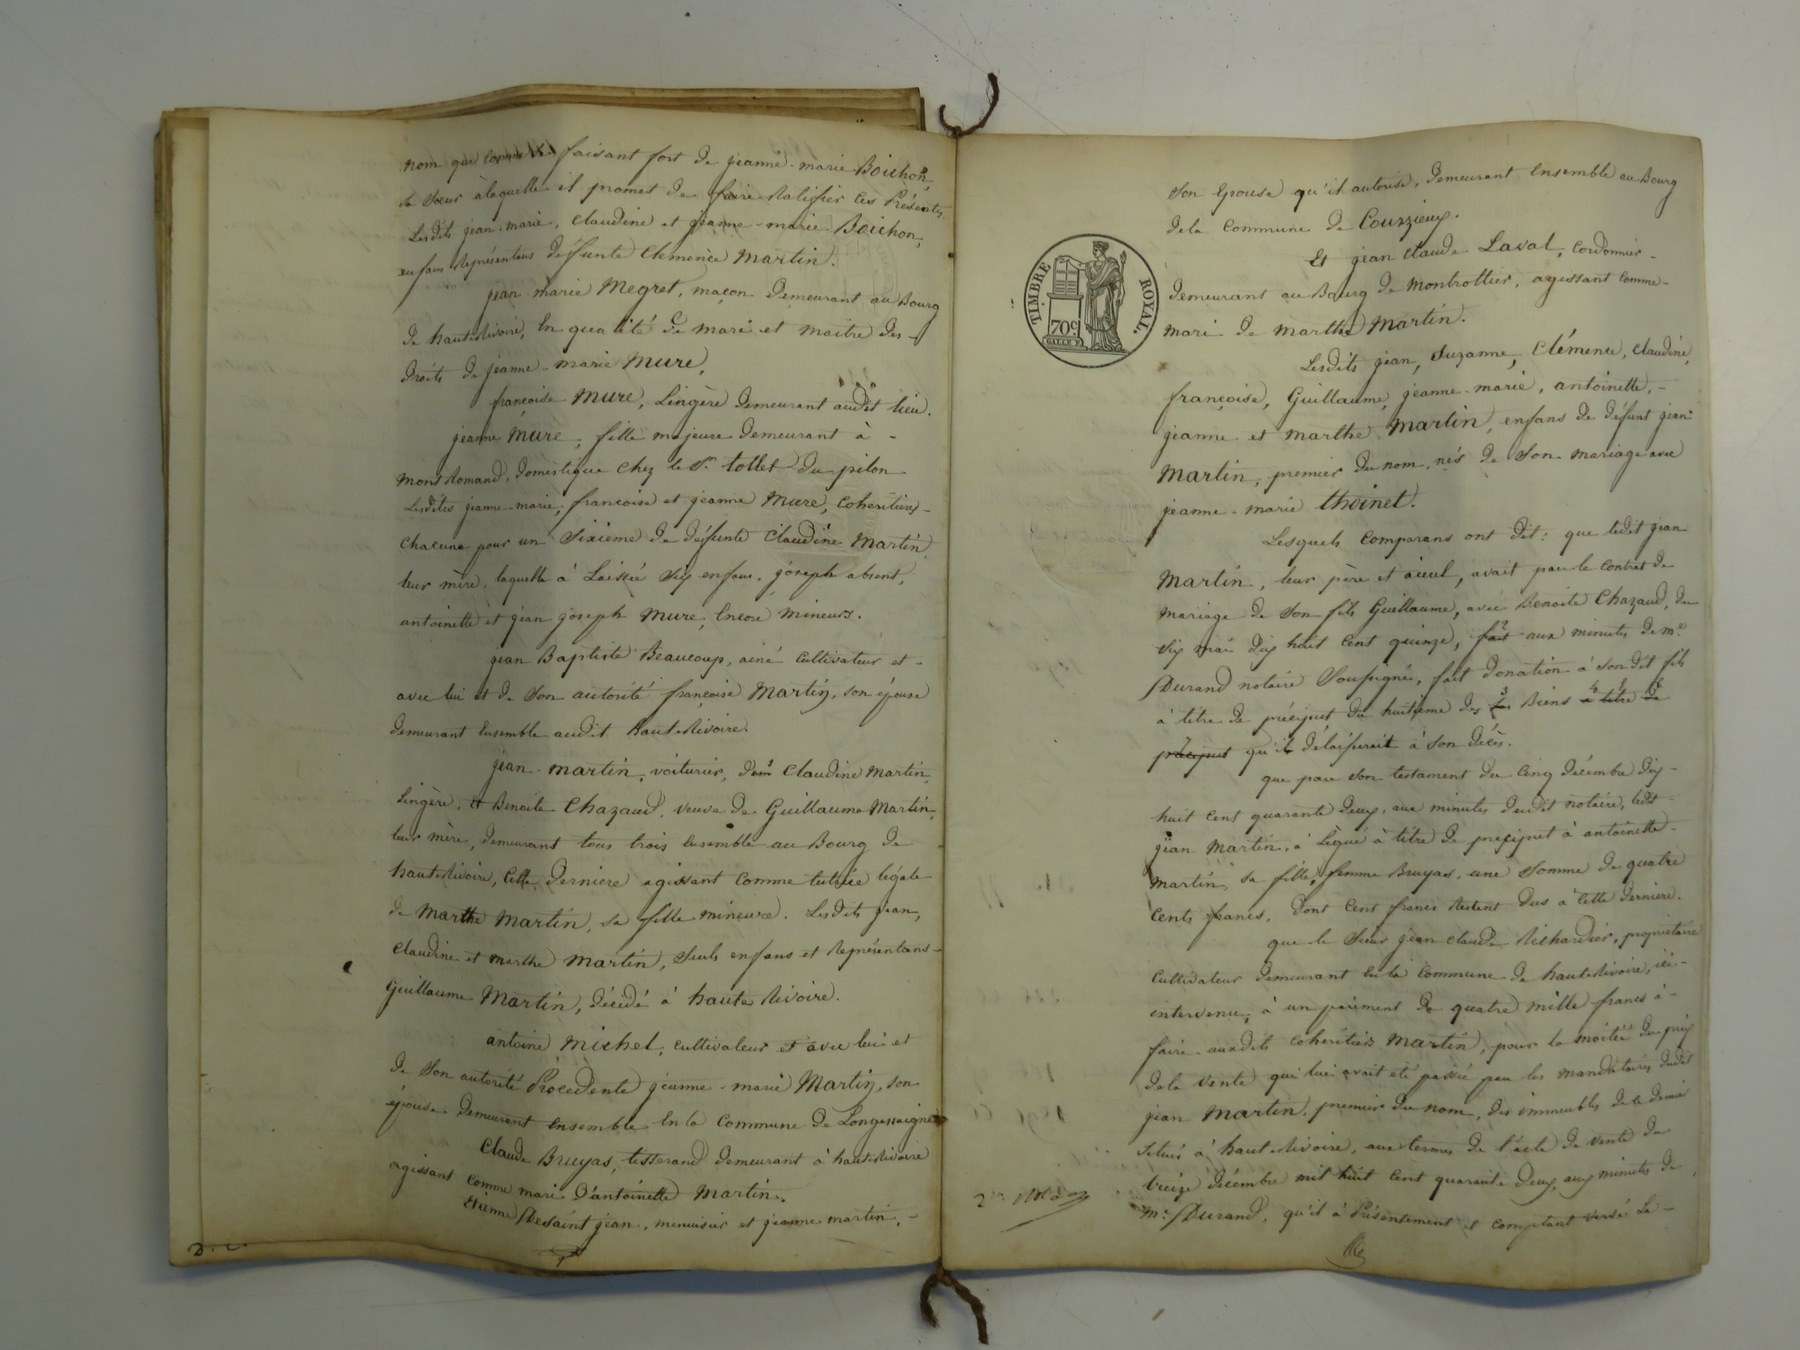 nom que comme se faisant fort de jeanne-marie Boichon,
sa Sœur à laquelle il promet de faire Ratifier ces Présentes
Lesdits jean-marie, Claudine et jeanne-marie Boichon,
enfans Représentans défunte Clémence Martin.
jean-marie Megret, maçon demeurant au Bourg
de hauteRivoire, En qualité de mari et maitre des-
droits de jeanne-marie Mure,
françoise Mure, Lingère demeurant audit lieu.
jeanne Mure, fille majeure demeurant à -
montRomand, domestique chez le Sr. tollet du pilon
Lesdites jeanne-marie, françoise et jeanne Mure, Coheritières-
chacune pour un Sixieme de défunte Claudine Martin,
leur mère, laquelle à Laissée Six enfans, joseph absent,
antoinette et jean joseph Mure, Encore Mineurs.
jean Baptiste Beaucoup, ainé Cultivateur et -
avec lui et de Son autorité françoise Martin, son épouse
demeurant Ensemble audit HauteRivoire.
jean-martin, voiturier, demlle Claudine Martin,
Lingère, et Benoite Chazaud, veuve de Guillaume Martin,
leur mère, demeurant tous trois Ensemble au Bourg de
hauteRivoire, Cette derniere agissant comme tutrice légale
de Marthe Martin, sa fille mineure. Lesdits jean,
Claudine et marthe Martin, Seuls enfans et Représentans-
Guillaume Martin, décédé à haute Rivoire.
antoine Michel, cultivateur et avec lui et
de Son autorité Procedente jeanne-marie Martin, son
épouse demeurant Ensemble En la Commune de Longessaigne
Claude Bruyas, tisserand demeurant à hauteRivoire
agissant comme mari d'antoinette Martin.
Etienne Desaint jean, menuisier et jeanne martin, -
D.
Son Epouse qu'il autorise, demeurant Ensemble au Bourg
dela Commune de Couzzieux.
TIMBRE ROYAL.
70c.
Et jean Claude Laval, Cordonnier -
demeurant au Bourg de Montrottier, agissant Comme -
mari de Marthe Martin.
Lesdits jean, Suzanne, Clémence, Claudine,
françoise, Guillaume, jeanne-marie, antoinette, -
jeanne et marthe Martin, enfans de défunt jean-
Martin, premier du nom, nés de Son mariage avec
jeanne-marie thoinet.
Lesquels Comparans ont dit: que ledit jean
Martin, leur père et aïeul, avait par le Contrat de
mariage de Son fils Guillaume, avec Benoite Chazaud, du
Six mai dix huit Cent quinze, fait aux minutes de Me.
Durand notaire Soussigné, fait donation à Son dit fils
à titre de préciput du huitieme des les Biens à titre de
préciput qu'il délaisserait à Son décès.
que par Son testament du Cinq décembre dix-
huit Cent quarante deux, aux minutes dudit notaire, ledit -
jean Martin, à Légué à titre de preciput à antoinette-
Martin, sa fille, femme Bruyas, une Somme de quatre
Cents francs, dont Cent francs Restent dus à Cette derniere.
que le Sieur jean Claude Richardier, propriétaire
Cultivateur demeurant En la Commune de hauteRivoire, ici-
intervenu, à un paiement de quatre mille francs à-
faire auxdits Cohéritiers Martin, pour la moitié du prix
dela Vente qui lui avait été passée par les mandataires dudit
jean Martin, premier du nom, des immeubles de Ce dernier
Situés à hauteRivoire, aux termes de l'acte de vente du
treize décembre mil huit Cent quarante deux, aux minutes de
Me. Durand, qu'il à Présentement et Comptant Versé La-